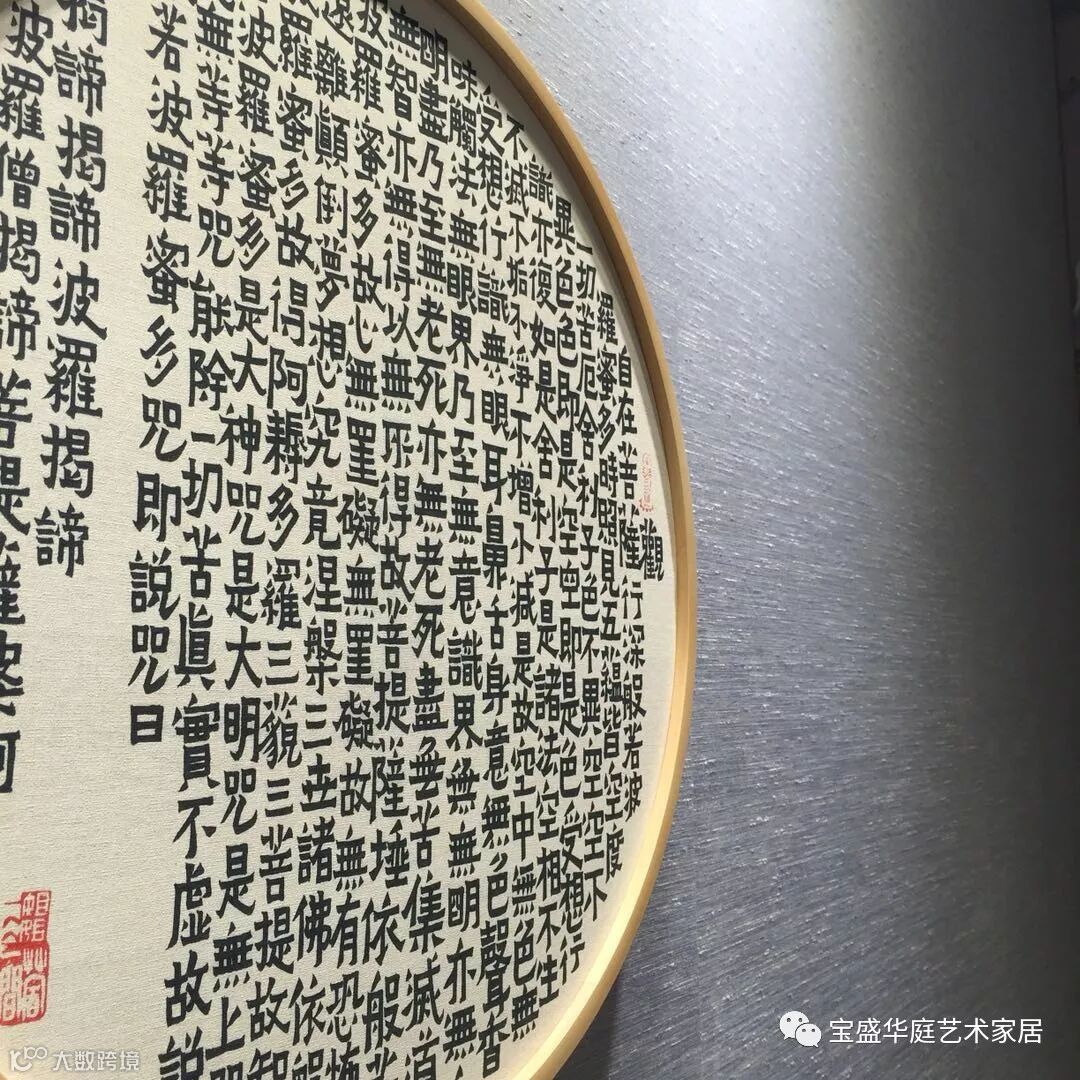 觀
自在菩薩行深般若波
羅蜜多時照見五蘊皆空度
一切苦厄舍利子色不異空空不
異色色即是空空即是色受想行
識亦復如是舍利子是諸法空相不生
不滅不垢不淨不增不減是故空中無色無
受想行識無眼耳鼻舌身意無色聲香
味觸法無眼界乃至無意識界無無明亦無
明盡乃至無老死亦無老死盡無苦集滅道
無智亦無得以無所得故菩提薩埵依般若
波羅蜜多故心無罣礙無罣礙故無有恐怖
遠離顛倒夢想究竟涅槃三世諸佛依般
羅蜜多故得阿耨多羅三藐三菩提故知
波羅蜜多是大神咒是大明咒是無上咒
無等等咒能除一切苦真實不虛故說
若波羅蜜多咒即說咒曰
揭諦揭諦波羅揭諦
波羅僧揭諦菩提薩婆訶
宝盛华庭艺术家居
大数跨境